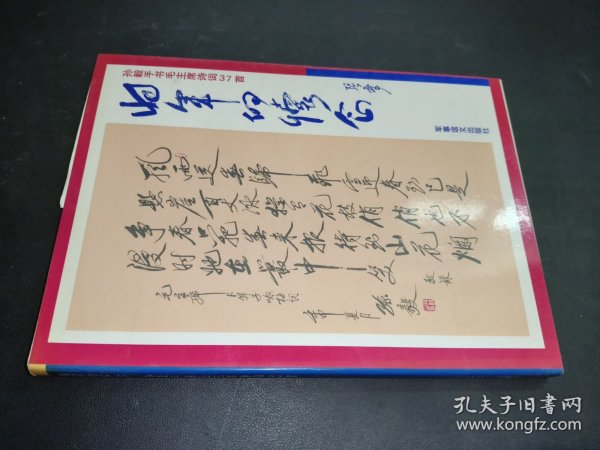 孙毅手书毛主席诗词37首
年的懷念
军事谊文出版社
風雨送春歸飛雪迎春到已是
懸崖百丈冰猶有花枝俏俏也不
争春只把春来报待到山花烂
漫时她在丛中笑
毛主席 卜算子咏梅词
孙毅
孔夫子旧书网
www.kongfz.com